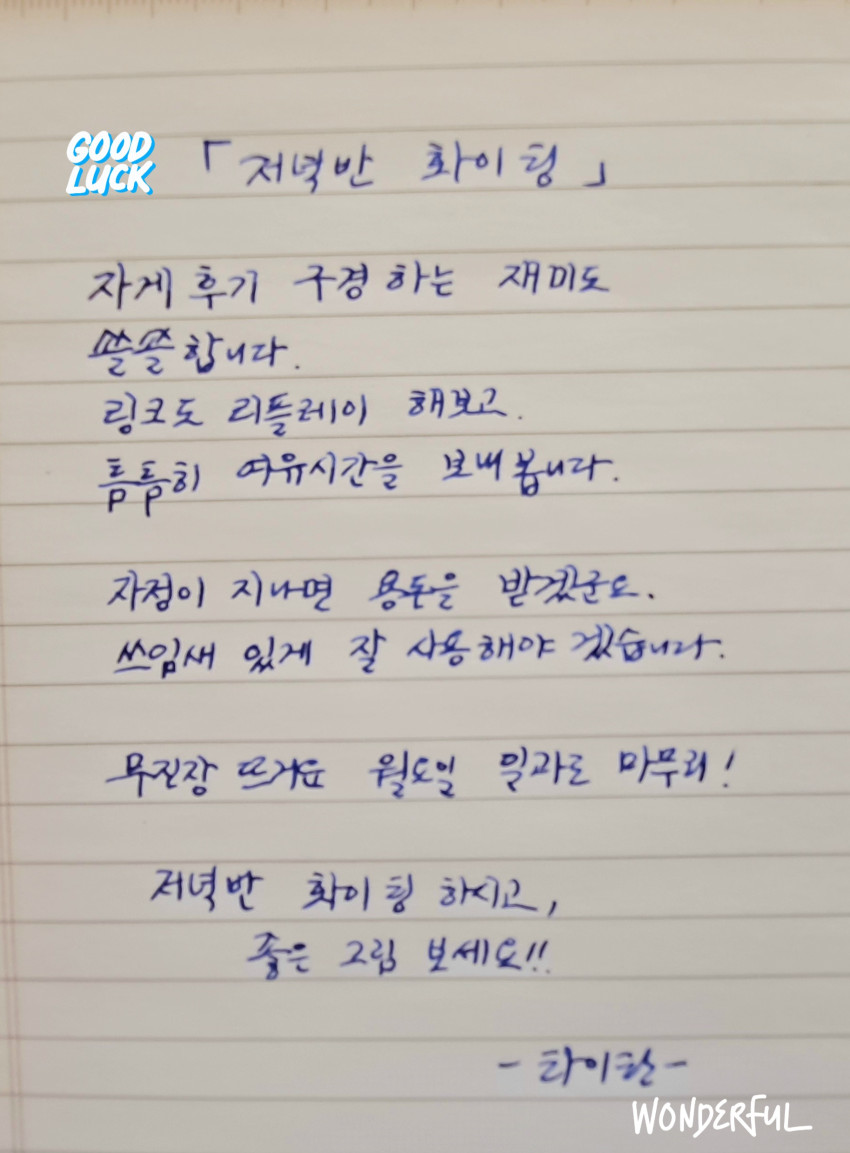 GOOD
LUCK
「저녁반 화이팅」
자게 후기 구경하는 재미도
쏠쏠합니다.
링크도 리플레이 해보고.
틈틈히 여유시간을 보내봅니다.
자정이 지나면 용돈을 받겠군요.
쓰임새 있게 잘 사용해야 겠습니다.
무진장 뜨거운 월요일 일과도 마무리!
저녁반 화이팅 하시고,
좋은 그림 보세요!!
- 타이탄 -
WONDERFUL